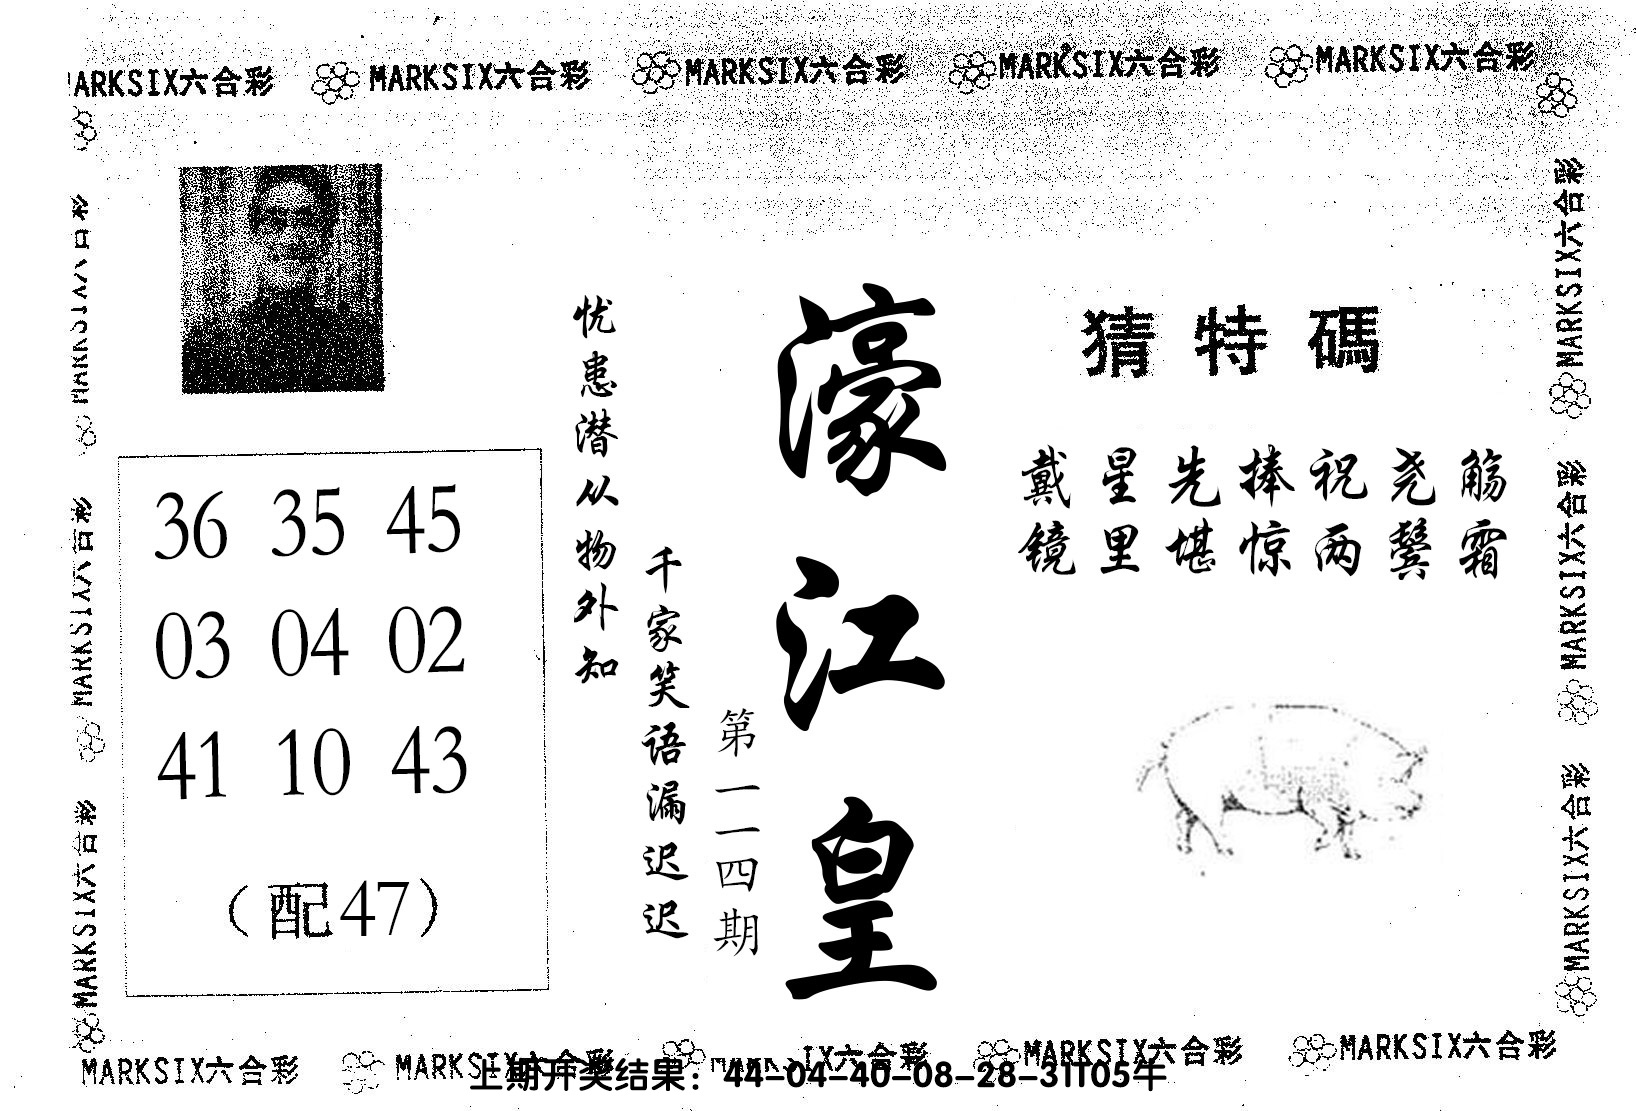 MARKSIX六合彩 MARKSIX六合彩 MARKSIX六合彩 MARKSIX六合彩 MARKSIX六合彩
MARKSIX六合彩
MARKSIX六合彩
MARKSIX六合彩
36 35 45
03 04 02
41 10 43
（配47）
忧患潜从物外知
千家笑语漏迟迟
第一一四期
濠江皇
猜特碼
戴星先捧祝尧觞
镜里堪惊两鬓霜
MARKSIX六合彩
MARKSIX六合彩
MARKSIX六合彩
MARKSIX六合彩 MARKSIX六合彩 IX六合彩 MARKSIX六合彩 MARKSIX六合彩
上期开奖结果：44-04-40-08-28-31T05午